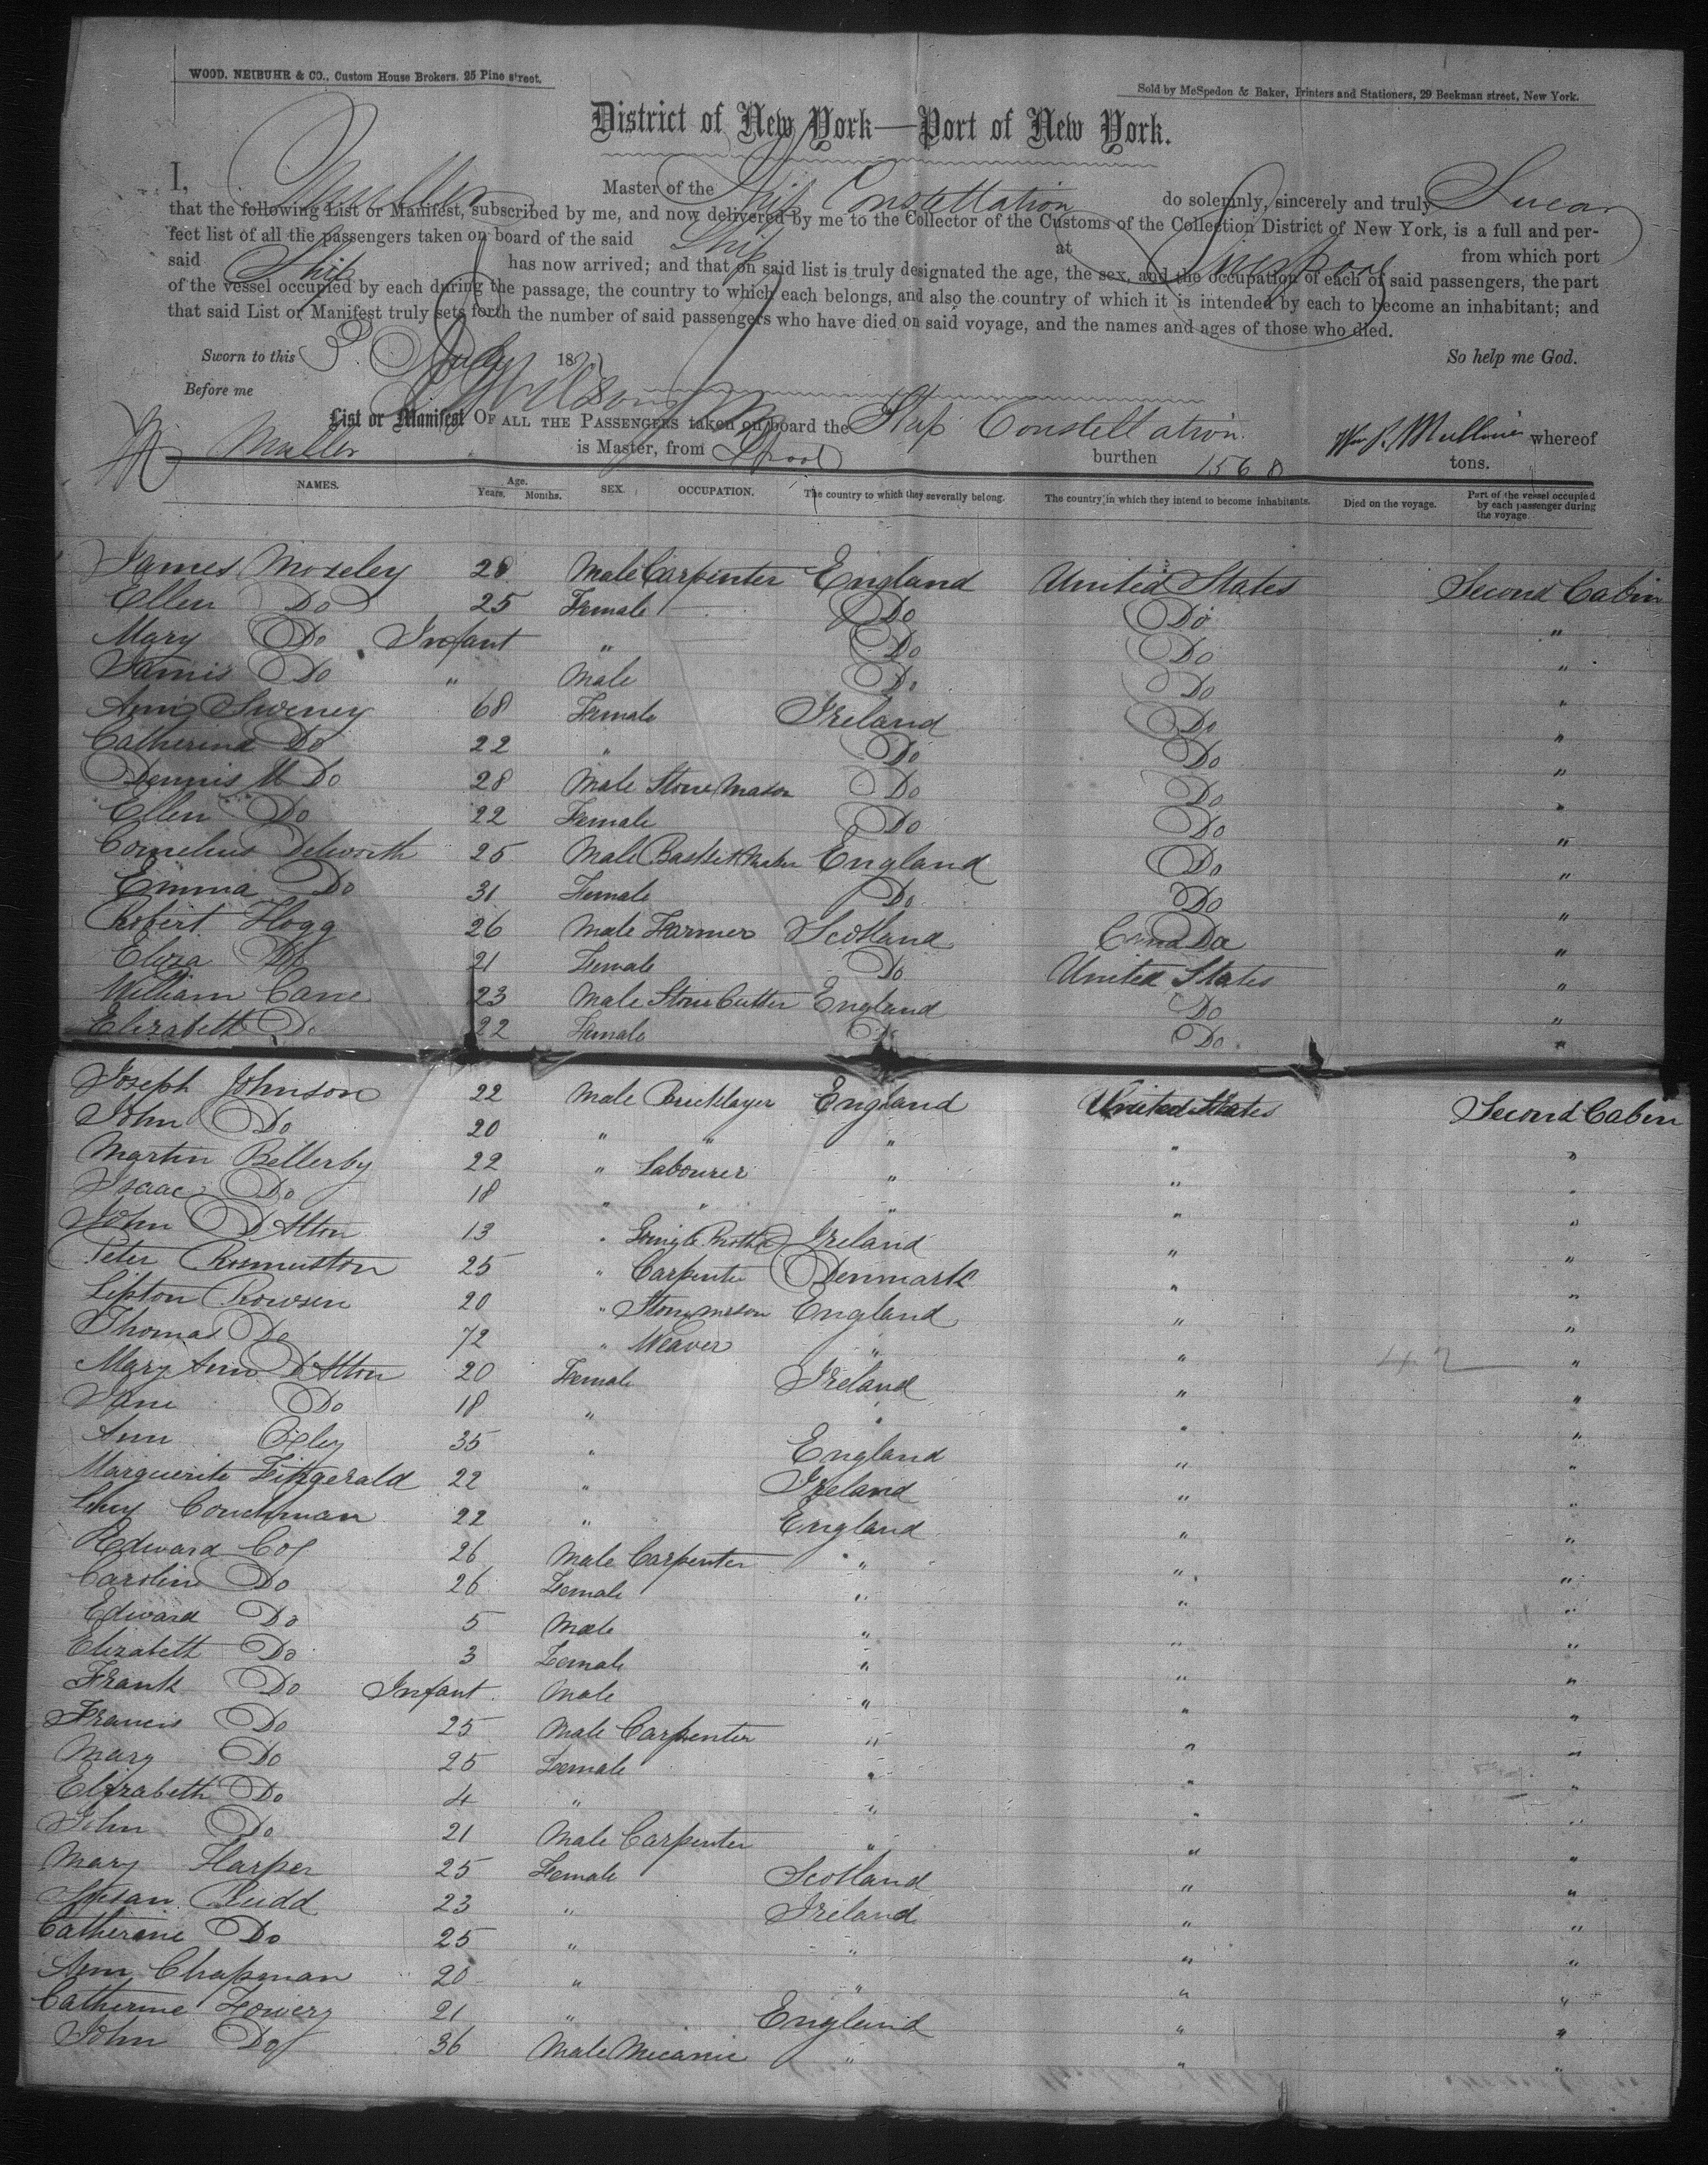 WOOD, NEIBUHR & CO., Custom House Brokers. 25 Pine street.
Sold by McSpedon & Baker, Printers and Stationers, 29 Beekman street, New York.
District of New York—Port of New York.
I, Muller Master of the Ship Constellation do solemnly, sincerely and truly Swear
that the following List or Manifest, subscribed by me, and now delivered by me to the Collector of the Customs of the Collection District of New York, is a full and per-
fect list of all the passengers taken on board of the said Ship at Liverpool from which port
said Ship has now arrived; and that on said list is truly designated the age, the sex, and the occupation of each of said passengers, the part
of the vessel occupied by each during the passage, the country to which each belongs, and also the country of which it is intended by each to become an inhabitant; and
that said List or Manifest truly sets forth the number of said passengers who have died on said voyage, and the names and ages of those who died.
Sworn to this 3 July 18 So help me God.
Before me
List or Manifest OF ALL THE PASSENGERS taken on board the Ship Constellation Wm P. Mullins whereof
Muller is Master, from Lpool burthen 1568 tons.
NAMES. Age. Years. Months. SEX. OCCUPATION. The country to which they severally belong. The country in which they intend to become inhabitants. Died on the voyage. Part of the vessel occupied by each passenger during the voyage
James Moseley 28 Male Carpenter England United States Second Cabin
Ellen Do 25 Female Do Do "
Mary Do Infant " Do Do "
Jamis Do " Male Do Do "
Ann Sweney 68 Female Ireland Do "
Catherina Do 22 " Do Do "
Dennis M Do 28 Male Stone Mason Do Do "
Ellen Do 22 Female Do Do "
Cornelius Delworth 25 Male Basket Maker England Do "
Emma Do 31 Female Do Do "
Robert Hogg 26 Male Farmer Scotland CanaDa "
Eliza Do 21 Female Do United States "
William Cane 23 Male Stone Cutter England Do "
Elizabeth Do 22 Female Do Do "
Joseph Johnson 22 Male Bricklayer England United States Second Cabin
John Do 20 " " " " "
Martin Bellerby 22 " Labourer " " "
Isaac Do 18 " " " " "
John DAlton 13 " Ireland " "
Peter Rosmuston 25 " Carpenter Denmark " "
Lipton Rowsen 20 " Stonemason England " "
Thomas Do 72 " Weaver " " "
Mary Ann DAlton 20 Female Ireland " "
Jane Do 18 " " " "
Ann Oxley 35 " England " "
Marguerite Fitzgerald 22 " Ireland " "
Lucy Couchman 22 " England " "
Edward Cox 26 Male Carpenter " " "
Caroline Do 26 Female " " "
Edward Do 5 Male " " "
Elizabeth Do 3 Female " " "
Frank Do Infant Male " " "
Francis Do 25 Male Carpenter " " "
Mary Do 25 Female " " "
Elizabeth Do 4 " " " "
John Do 21 Male Carpenter " " "
Mary Harper 25 Female Scotland " "
Susan Rudd 23 " Ireland " "
Catherine Do 25 " " " "
Ann Chapman 20 " " " "
Catherine Fowery 21 " England " "
John Do 36 Male Mecanic " " "